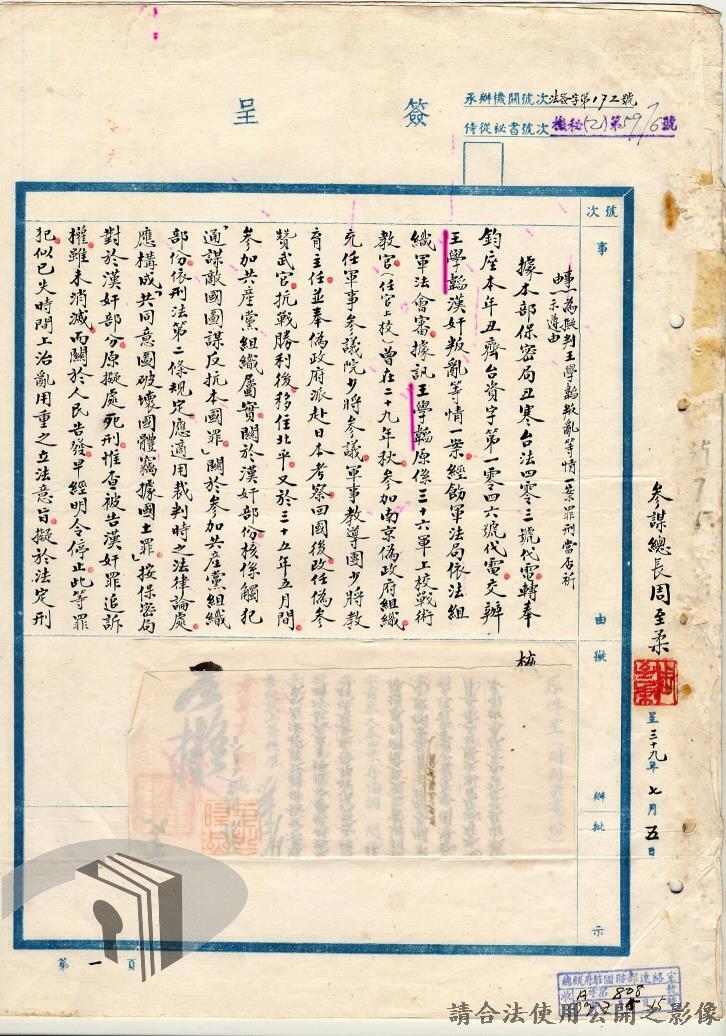 簽呈
承辦機關號次 法簽字第172號
侍從祕書號次 機秘(乙)第59/6號
號次
事由
擬辦
批示
參謀總長周至柔
呈 三十九年七月五日
事由：為擬判王學韜叛亂等情一案罪刑當否祈
核示遵由
據本部保密局丑寒台法四零三號代電轉奉
鈞座本年丑齊台資字第一零四六號代電交辦
王學韜漢奸叛亂等情一案經飭軍法局依法組
織軍法會審據訊王學韜原係三十六軍上校戰術
教官(任官上校)曾在二十九年秋參加南京偽政府組織
充任軍事參議院少將參議軍事教導團少將教
育主任並奉偽政府派赴日本考察回國後改任偽參
贊武官抗戰勝利後移住北平又於三十五年五月間
參加共產黨組織屬實關於漢奸部份核係觸犯
「通謀敵國圖謀反抗本國罪」關於參加共產黨組織
部份依刑法第二條規定應適用裁判時之法律論處
應構成「共同意圖破壞國體竊據國土罪」按保密局
對於漢奸部分原擬處死刑惟查被告漢奸罪追訴
權雖未消滅而關於人民告發早經明令停止此等罪
犯似已失時間上治亂用重之立法意旨擬於法定刑
第一頁
總統府駐國防部連絡室
請合法使用公開之影像